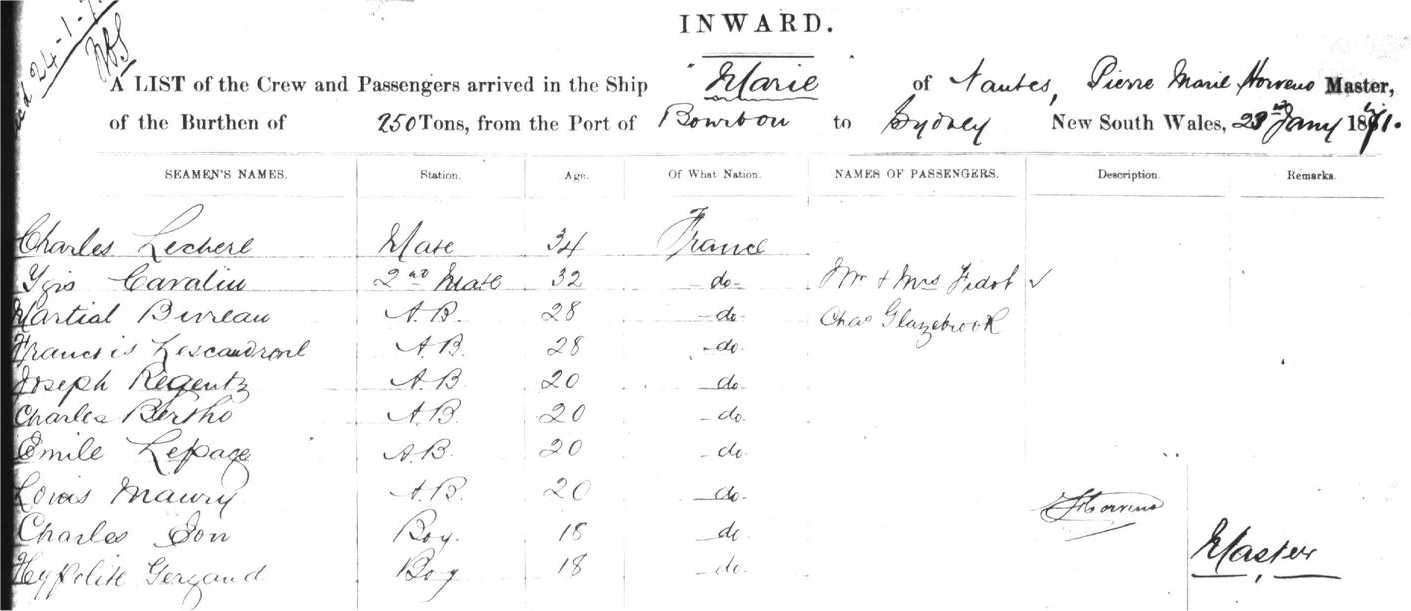 24-1-7
INWARD.
A LIST of the Crew and Passengers arrived in the Ship "Marie of Nantes, Pierre Marie Horveno Master,
of the Burthen of 250 Tons, from the Port of Bourbon to Sydney New South Wales, 23rd Jany 1871.
SEAMEN'S NAMES. Station. Age. Of What Nation. NAMES OF PASSENGERS. Description. Remarks.
Charles Mate 34 France
Cavalin 2nd Mate 32 do Mr & Mrs Fidot ✓
Martial Bureau A.B. 28 do Chas Glazebrook
Francois A.B. 28 do
Joseph Regentz A.B. 20 do
Charles Bertho A.B. 20 do
Emile Lepage A.B. 20 do
Louis Maury A.B. 20 do
Horveno
Charles Son Boy 18 do
Master
Hypolite Gergaud Boy 18 do